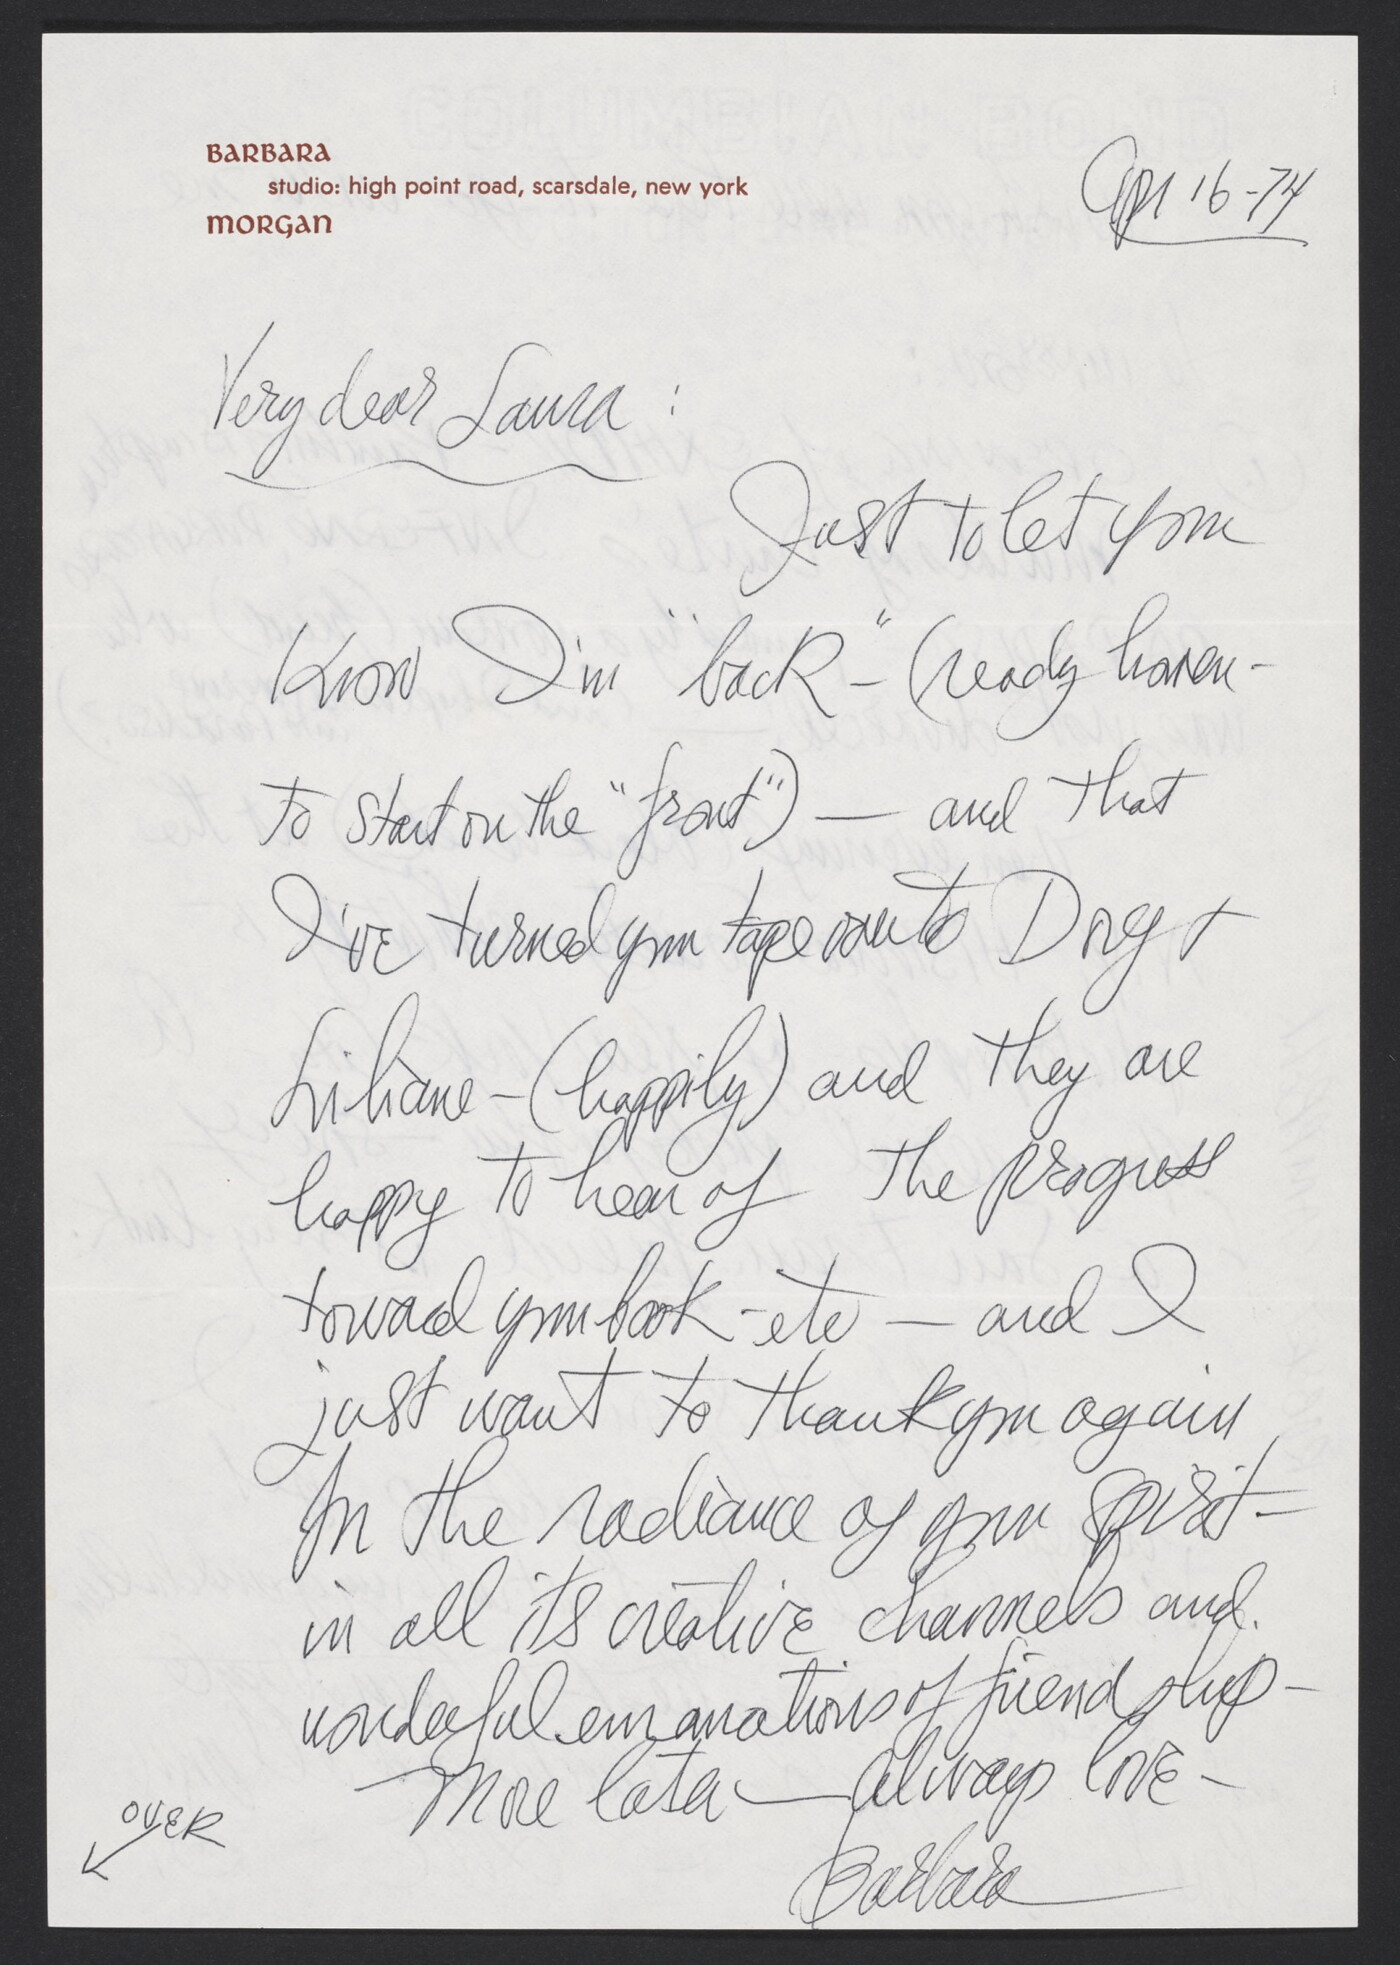 BARBARA
studio: high point road, scarsdale, new york
MORGAN
Apr 16-74
Very dear Laura:
Just to let you
Know I'm "back"- (ready
to start on the "front") — and that
I've turned your tape over to Doug +
Liliane - (happily) and they are
happy to hear of the progress
toward your book - etc — and I
just want to thank you again
for the radiance of your spirit -
in all its creative channels and
wonderful emanations of friendship -
— More later — always love -
Barbara
OVER